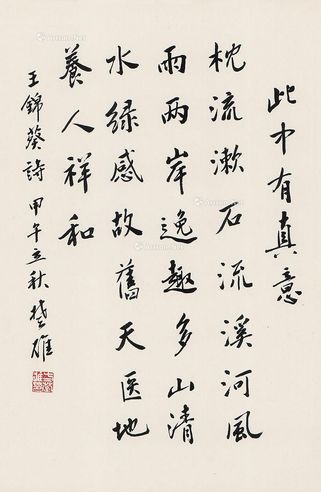 此中有真意
枕流漱石流溪河風
雨兩岸逸趣多山清
水绿感故舊天医地
養人祥和
王錦葵詩 甲午立秋 楚雄